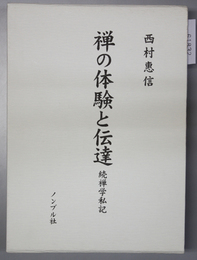 西村惠信
禅の体験と伝達
続禅学私記
ノンブル社